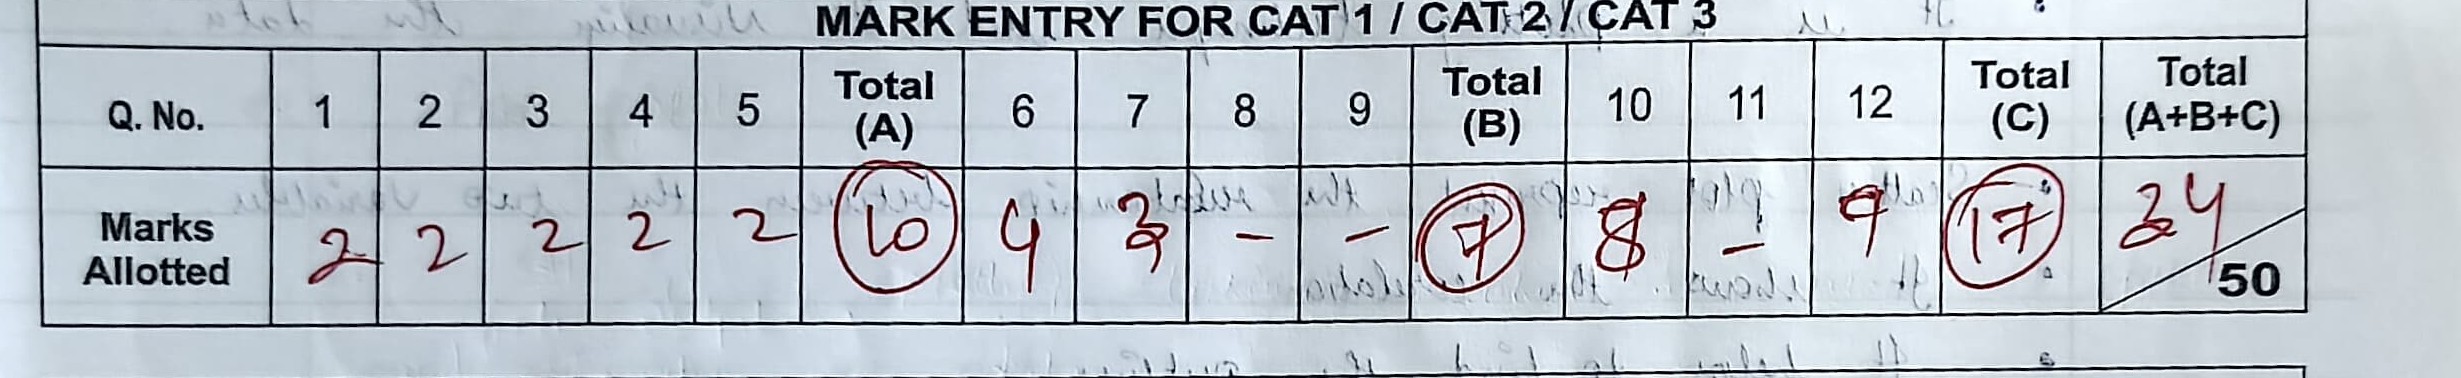 MARK ENTRY FOR CAT 1 / CAT 2 / CAT 3
Q. No. 1 2 3 4 5 Total (A) 6 7 8 9 Total (B) 10 11 12 Total (C) Total (A+B+C)
Marks Allotted 2 2 2 2 2 10 4 3 - - 7 8 - 9 17 34/50